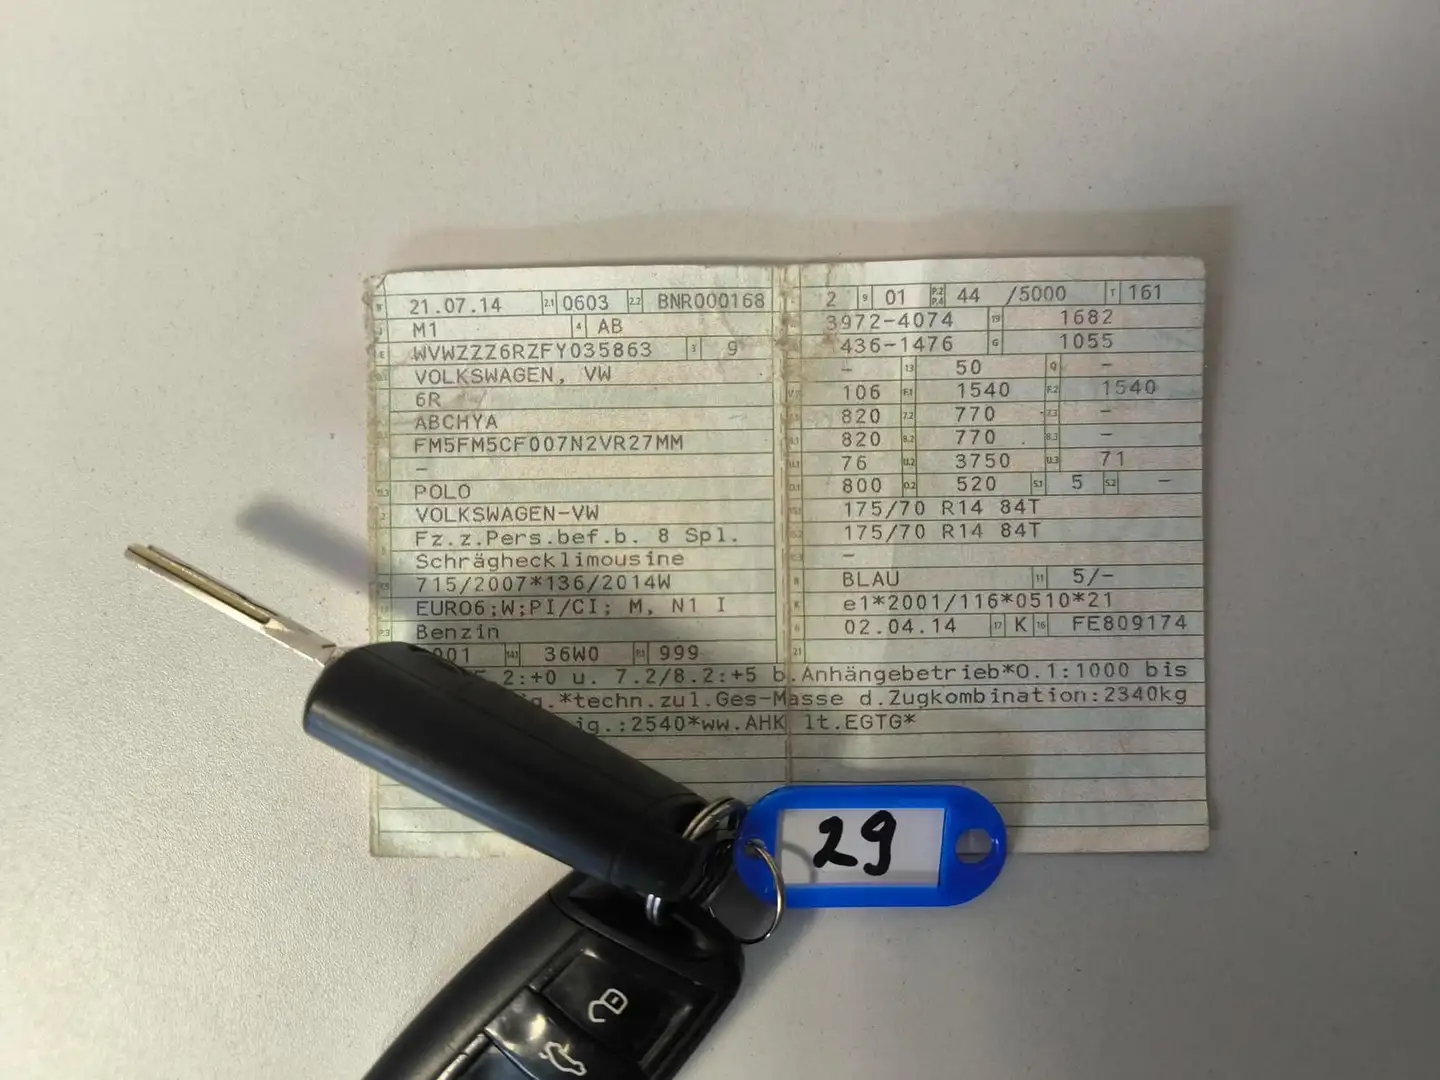 21.07.14 2.1 0603 2.2 BNR000168
M1 4 AB
WVWZZZ6RZFY035863 3 9
VOLKSWAGEN, VW
6R
ABCHYA
FM5FM5CF007N2VR27MM
–
POLO
VOLKSWAGEN-VW
Fz.z.Pers.bef.b. 8 Spl.
Schräghecklimousine
715/2007*136/2014W
EURO6;W;PI/CI; M, N1 I
P.3 Benzin
001 14.1 36W0 999
2 9 01 P.2 P.4 44 /5000 T 161
3972-4074 19 1682
436-1476 G 1055
– 13 50 Q –
106 F.1 1540 F.2 1540
820 7.2 770 7.3 –
820 8.2 770 8.3 –
76 U.2 3750 U.3 71
800 O.2 520 S.1 5 S.2 –
175/70 R14 84T
175/70 R14 84T
–
R BLAU 11 5/-
K e1*2001/116*0510*21
6 02.04.14 17 K 16 FE809174
21
2:+0 u. 7.2/8.2:+5 b.Anhängebetrieb*O.1:1000 bis
g.*techn.zul.Ges-Masse d.Zugkombination:2340kg
ig.:2540*ww.AHK lt.EGTG*
29